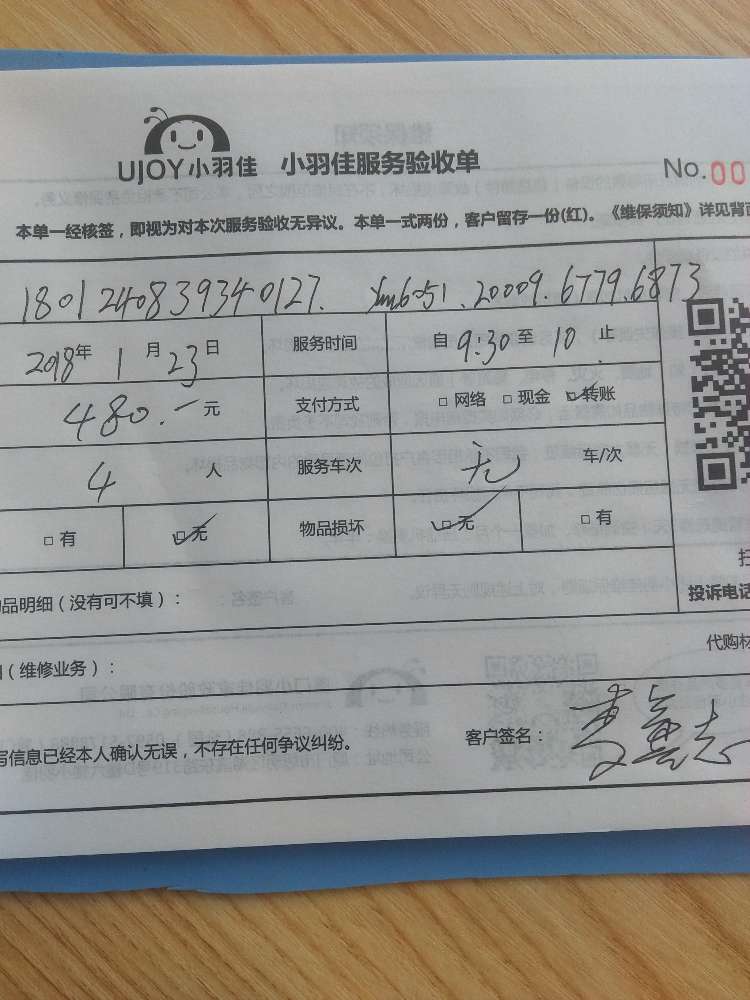 UJOY小羽佳 小羽佳服务验收单 No.00
本单一经核签，即视为对本次服务验收无异议。本单一式两份，客户留存一份(红)。《维保须知》详见背面
1801240839340127. xm6051.20009.6779.6873
2018年1月23日 服务时间 自9:30至10止
480.一元 支付方式 □网络 □现金 ☑转账
4人 服务车次 无 车/次
□有 ☑无 物品损坏 ☑无 □有
品明细（没有可不填）： 投诉电话
（维修业务）： 代购材
写信息已经本人确认无误，不存在任何争议纠纷。 客户签名：